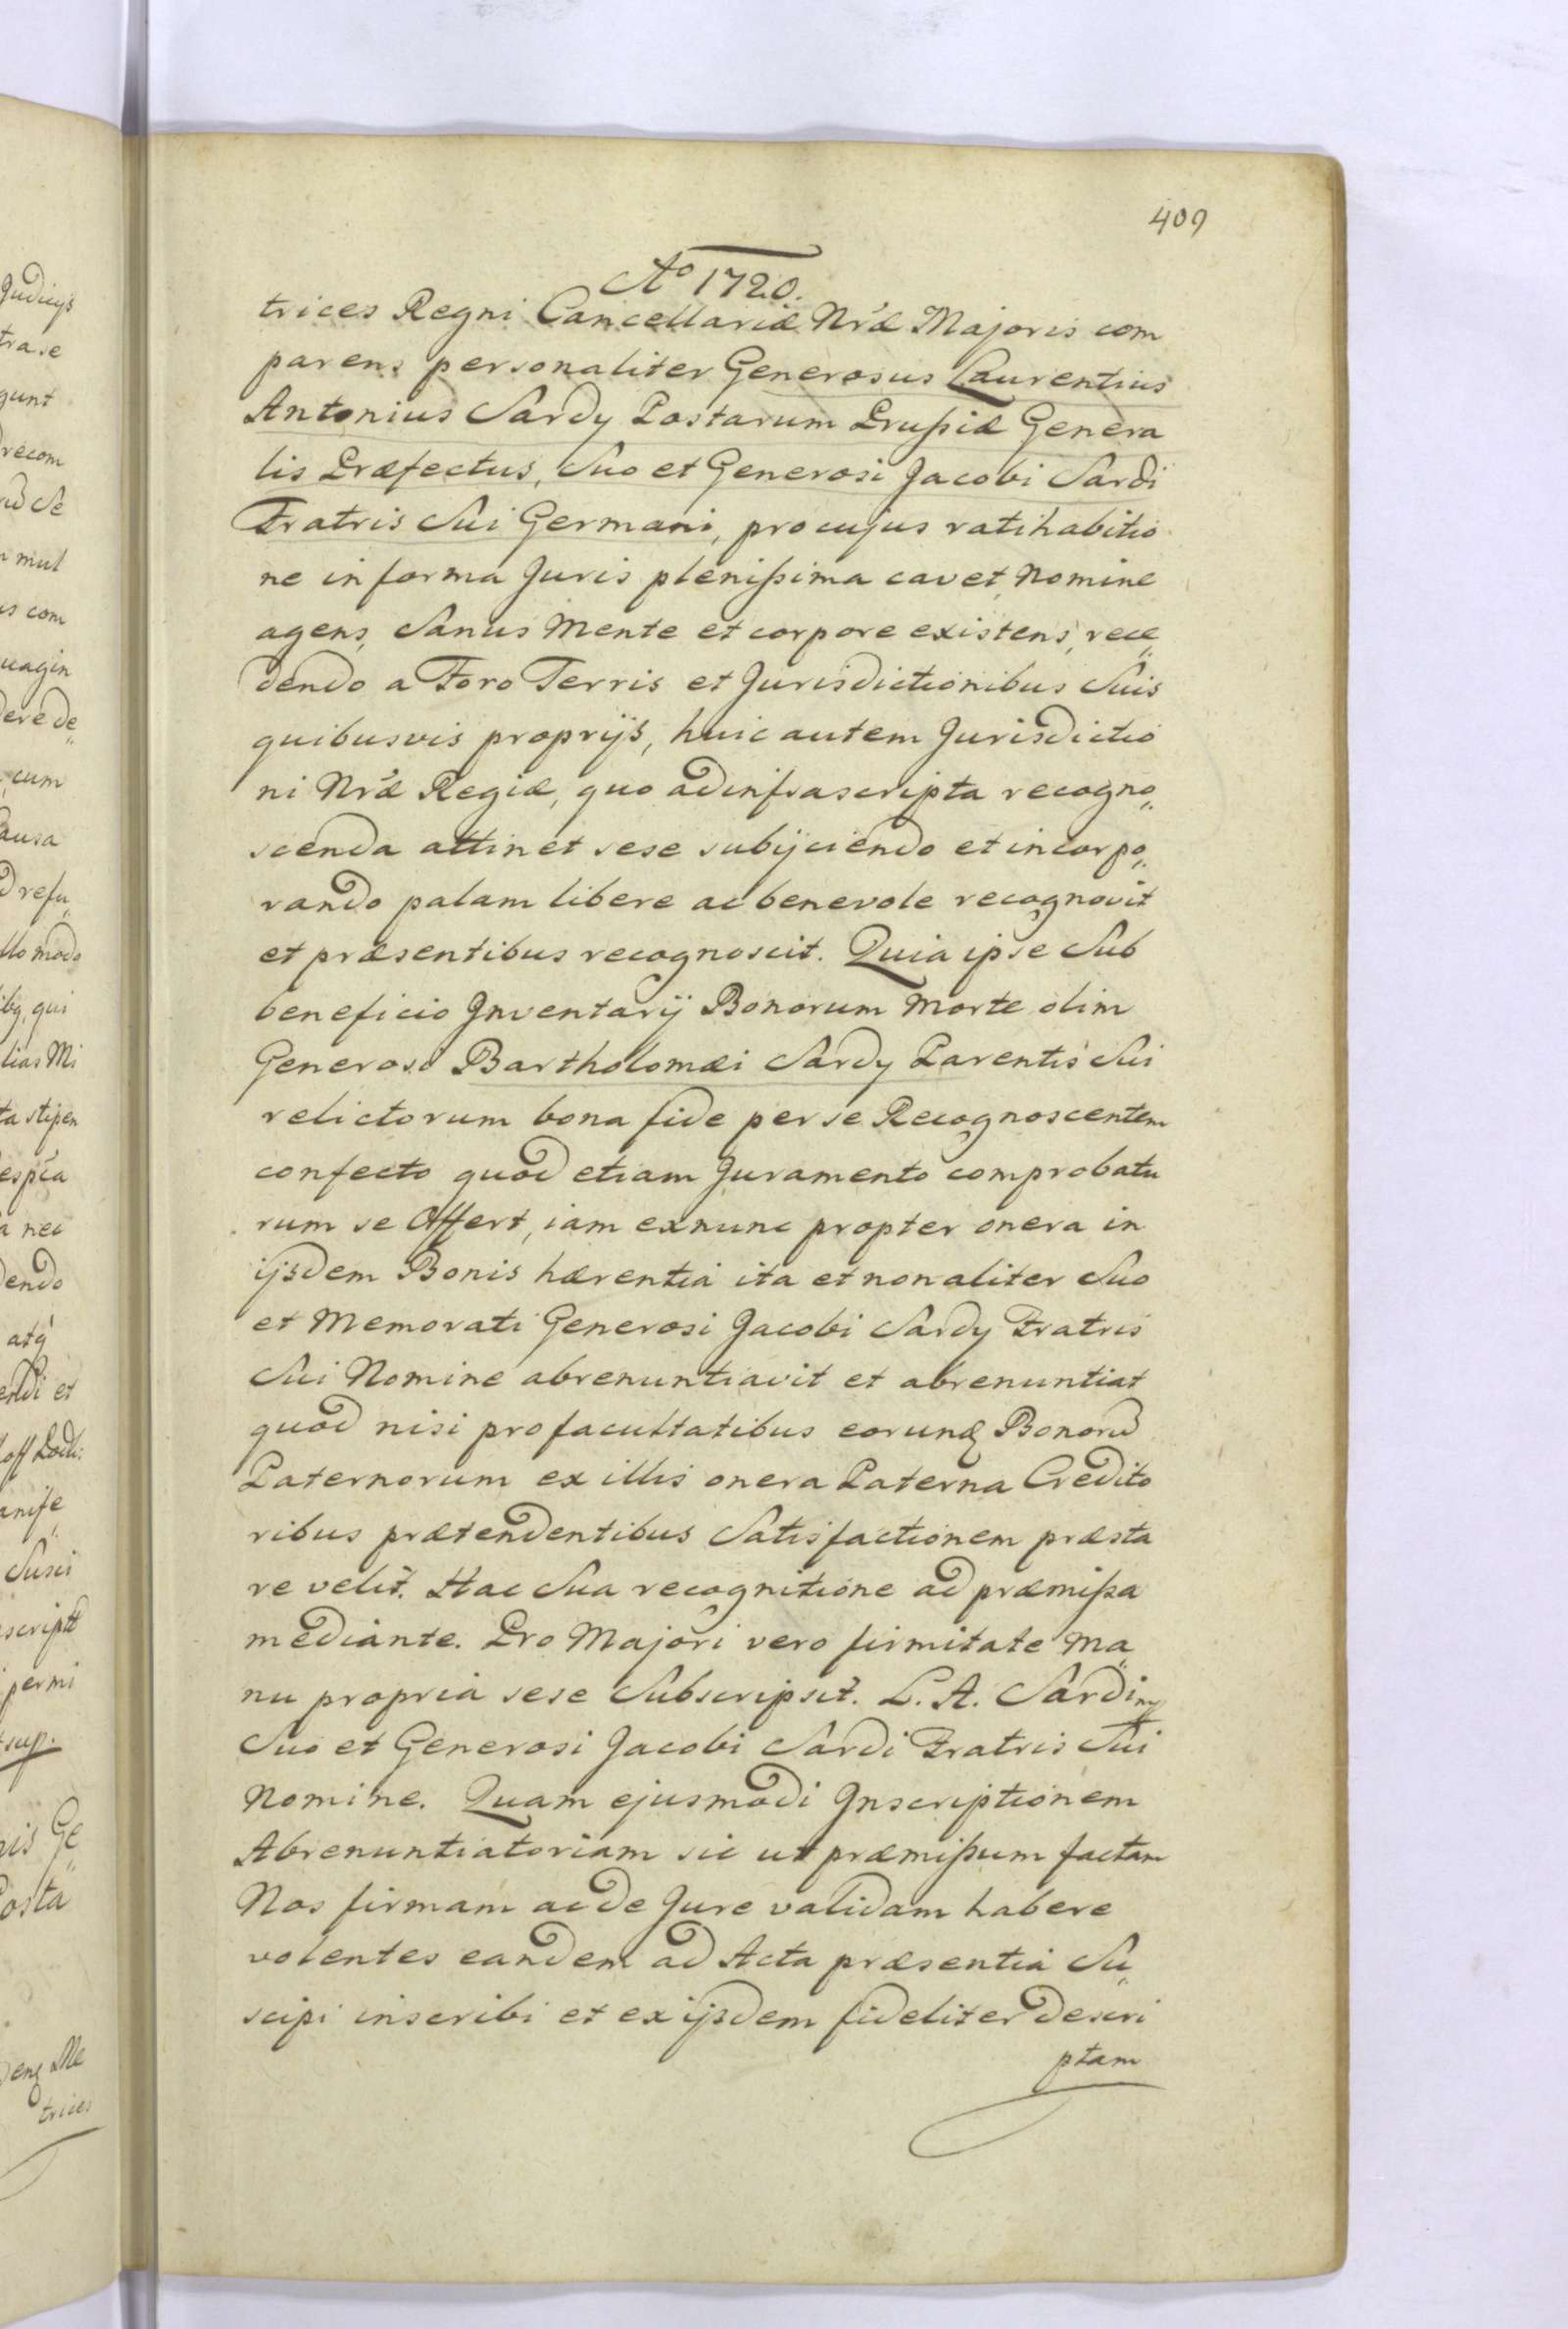 409
Ao 1720.
trices Regni Cancellariæ Nræ Majoris com
parens personaliter Generosus Laurentius
Antonius Sardy Postarum Prussiæ Genera
lis Præfectus, Suo et Generosi Jacobi Sardi
Fratris Sui Germani, pro cujus ratihabitio
ne in forma Juris plenissima cavet, Nomine
agens, Sanus Mente et corpore existens, rece„
dendo a Foro Terris et Jurisdictionibus Suis
quibusvis proprijs, huic autem Jurisdictio
ni Nræ Regiæ, quo ad infrascripta recogno„
scenda attinet sese subijciendo et incorpo„
rando palam libere ac benevole recognovit
et præsentibus recognoscit. Quia ipse Sub
beneficio Inventarij Bonorum Morte olim
Generosi Bartholomæi Sardy Parentis Sui
relictorum bona fide per se Recognoscentem
confecto quod etiam Juramento comprobatu
rum se Offert, iam exnunc propter onera in
ijsdem Bonis hærentia ita et non aliter Suo
et Memorati Generosi Jacobi Sardy Fratris
Sui Nomine abrenuntiavit et abrenuntiat
quod nisi pro facultatibus eorund Bonorū
Paternorum ex illis onera Paterna Credito
ribus prætendentibus Satisfactionem præsta
re velit. Hac Sua recognitione ad præmissa
mediante. Pro Majori vero firmitate Ma„
nu propria sese Subscripsit. L. A. Sardi mp
Suo et Generosi Jacobi Sardi Fratris Sui
Nomine. Quam ejusmodi Inscriptionem
Abrenuntiatoriam sic ut præmissum factam
Nos firmam ac de Jure validam habere
volentes eandem ad Acta præsentia Su„
scipi inscribi et ex ijsdem fideliter descri
ptam